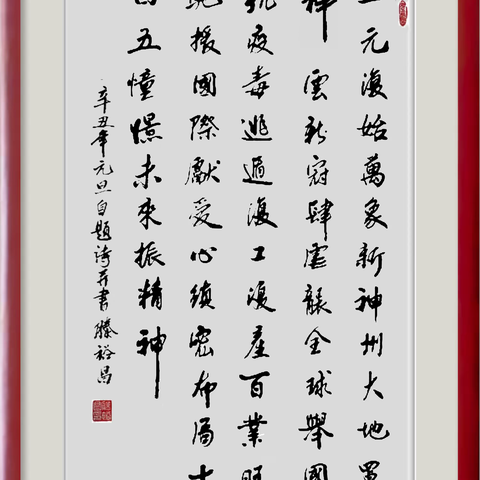 元復始萬象新神州大地
祥雲新冠肆虐襲全球舉國
抗疫毒逃遁復工復產百業
援國際獻愛心縝密布局十
五憧憬未來振精神
辛丑年元旦自題詩并書滕裕昌